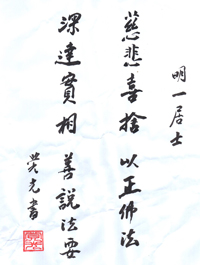 明一居士
慈悲喜捨以正佛法
深達實相善說法要
覺光書